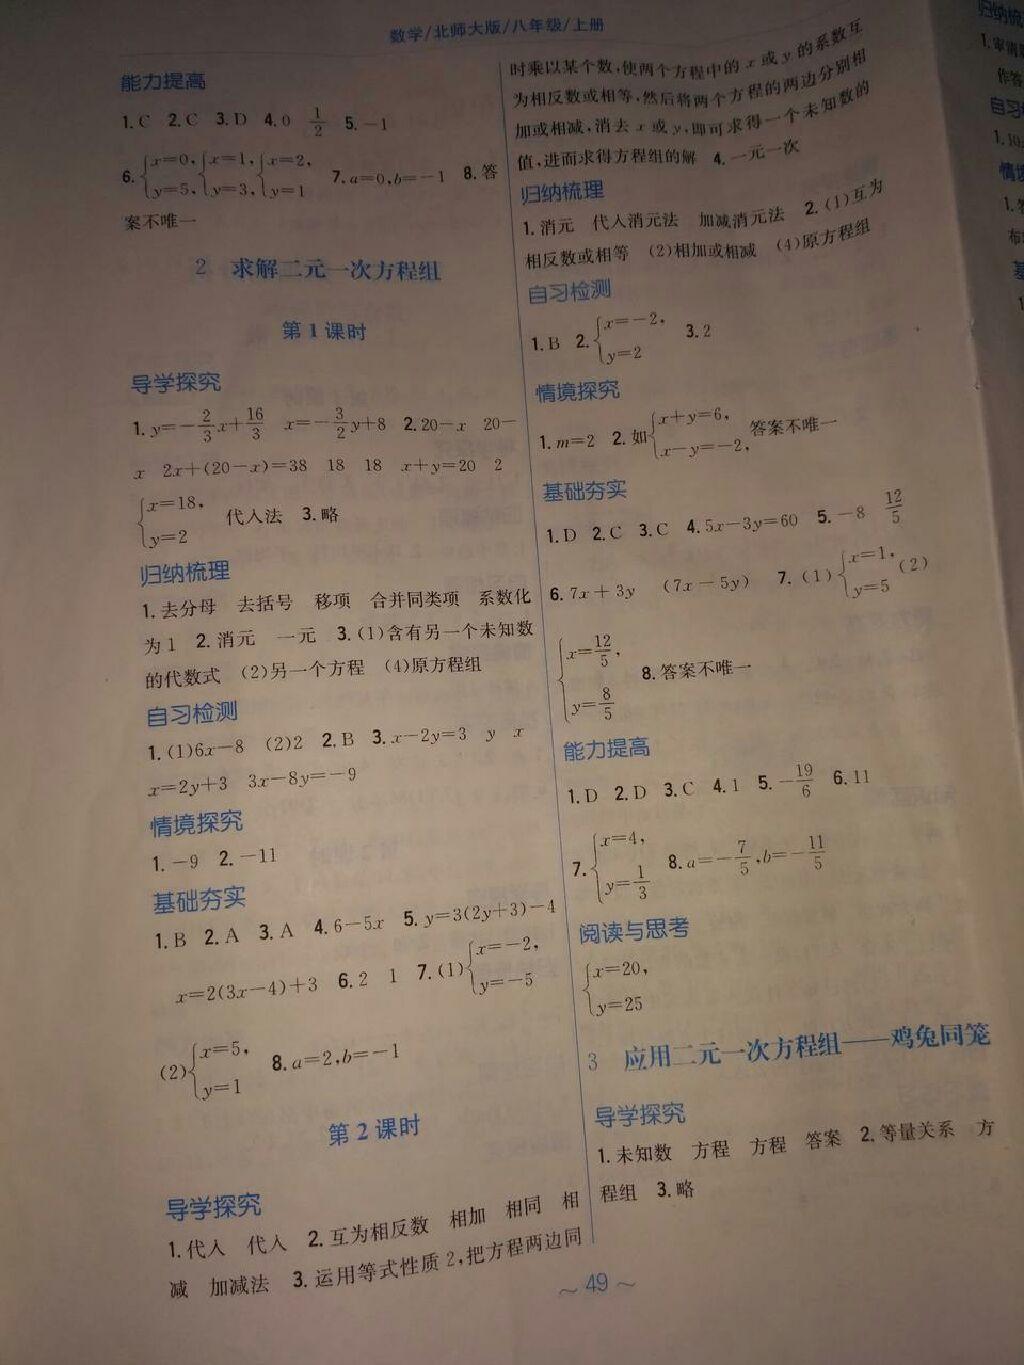 数学/北师大版/八年级/上册
能力提高
1.C 2.C 3.D 4.0 1/2 5.-1
6.{x=0, y=5, {x=1, y=3, {x=2, y=1 7.a=0,b=-1 8.答
案不唯一
2 求解二元一次方程组
第1课时
导学探究
1.y=-2/3x+16/3 x=-3/2y+8 2.20-x 20-
x 2x+(20-x)=38 18 18 x+y=20 2
{x=18, y=2 代入法 3.略
归纳梳理
1.去分母 去括号 移项 合并同类项 系数化
为1 2.消元 一元 3.(1)含有另一个未知数
的代数式 (2)另一个方程 (4)原方程组
自习检测
1.(1)6x-8 (2)2 2.B 3.x-2y=3 y x
x=2y+3 3x-8y=-9
情境探究
1.-9 2.-11
基础夯实
1.B 2.A 3.A 4.6-5x 5.y=3(2y+3)-4
x=2(3x-4)+3 6.2 1 7.(1){x=-2, y=-5
(2){x=5, y=1 8.a=2,b=-1
第2课时
导学探究
1.代入 代入 2.互为相反数 相加 相同 相
减 加减法 3.运用等式性质2,把方程两边同
时乘以某个数,使两个方程中的x或y的系数互
为相反数或相等,然后将两个方程的两边分别相
加或相减,消去x或y,即可求得一个未知数的
值,进而求得方程组的解 4.一元一次
归纳梳理
1.消元 代入消元法 加减消元法 2.(1)互为
相反数或相等 (2)相加或相减 (4)原方程组
自习检测
1.B 2.{x=-2, y=2 3.2
情境探究
1.m=2 2.如{x+y=6, x-y=-2, 答案不唯一
基础夯实
1.D 2.C 3.C 4.5x-3y=60 5.-8 12/5
6.7x+3y (7x-5y) 7.(1){x=1, y=5 (2)
{x=12/5, y=8/5 8.答案不唯一
能力提高
1.D 2.D 3.C 4.1 5.-19/6 6.11
7.{x=4, y=1/3 8.a=-7/5,b=-11/5
阅读与思考
{x=20, y=25
3 应用二元一次方程组——鸡兔同笼
导学探究
1.未知数 方程 方程 答案 2.等量关系 方
程组 3.略
~49~
归纳梳
作答
自习